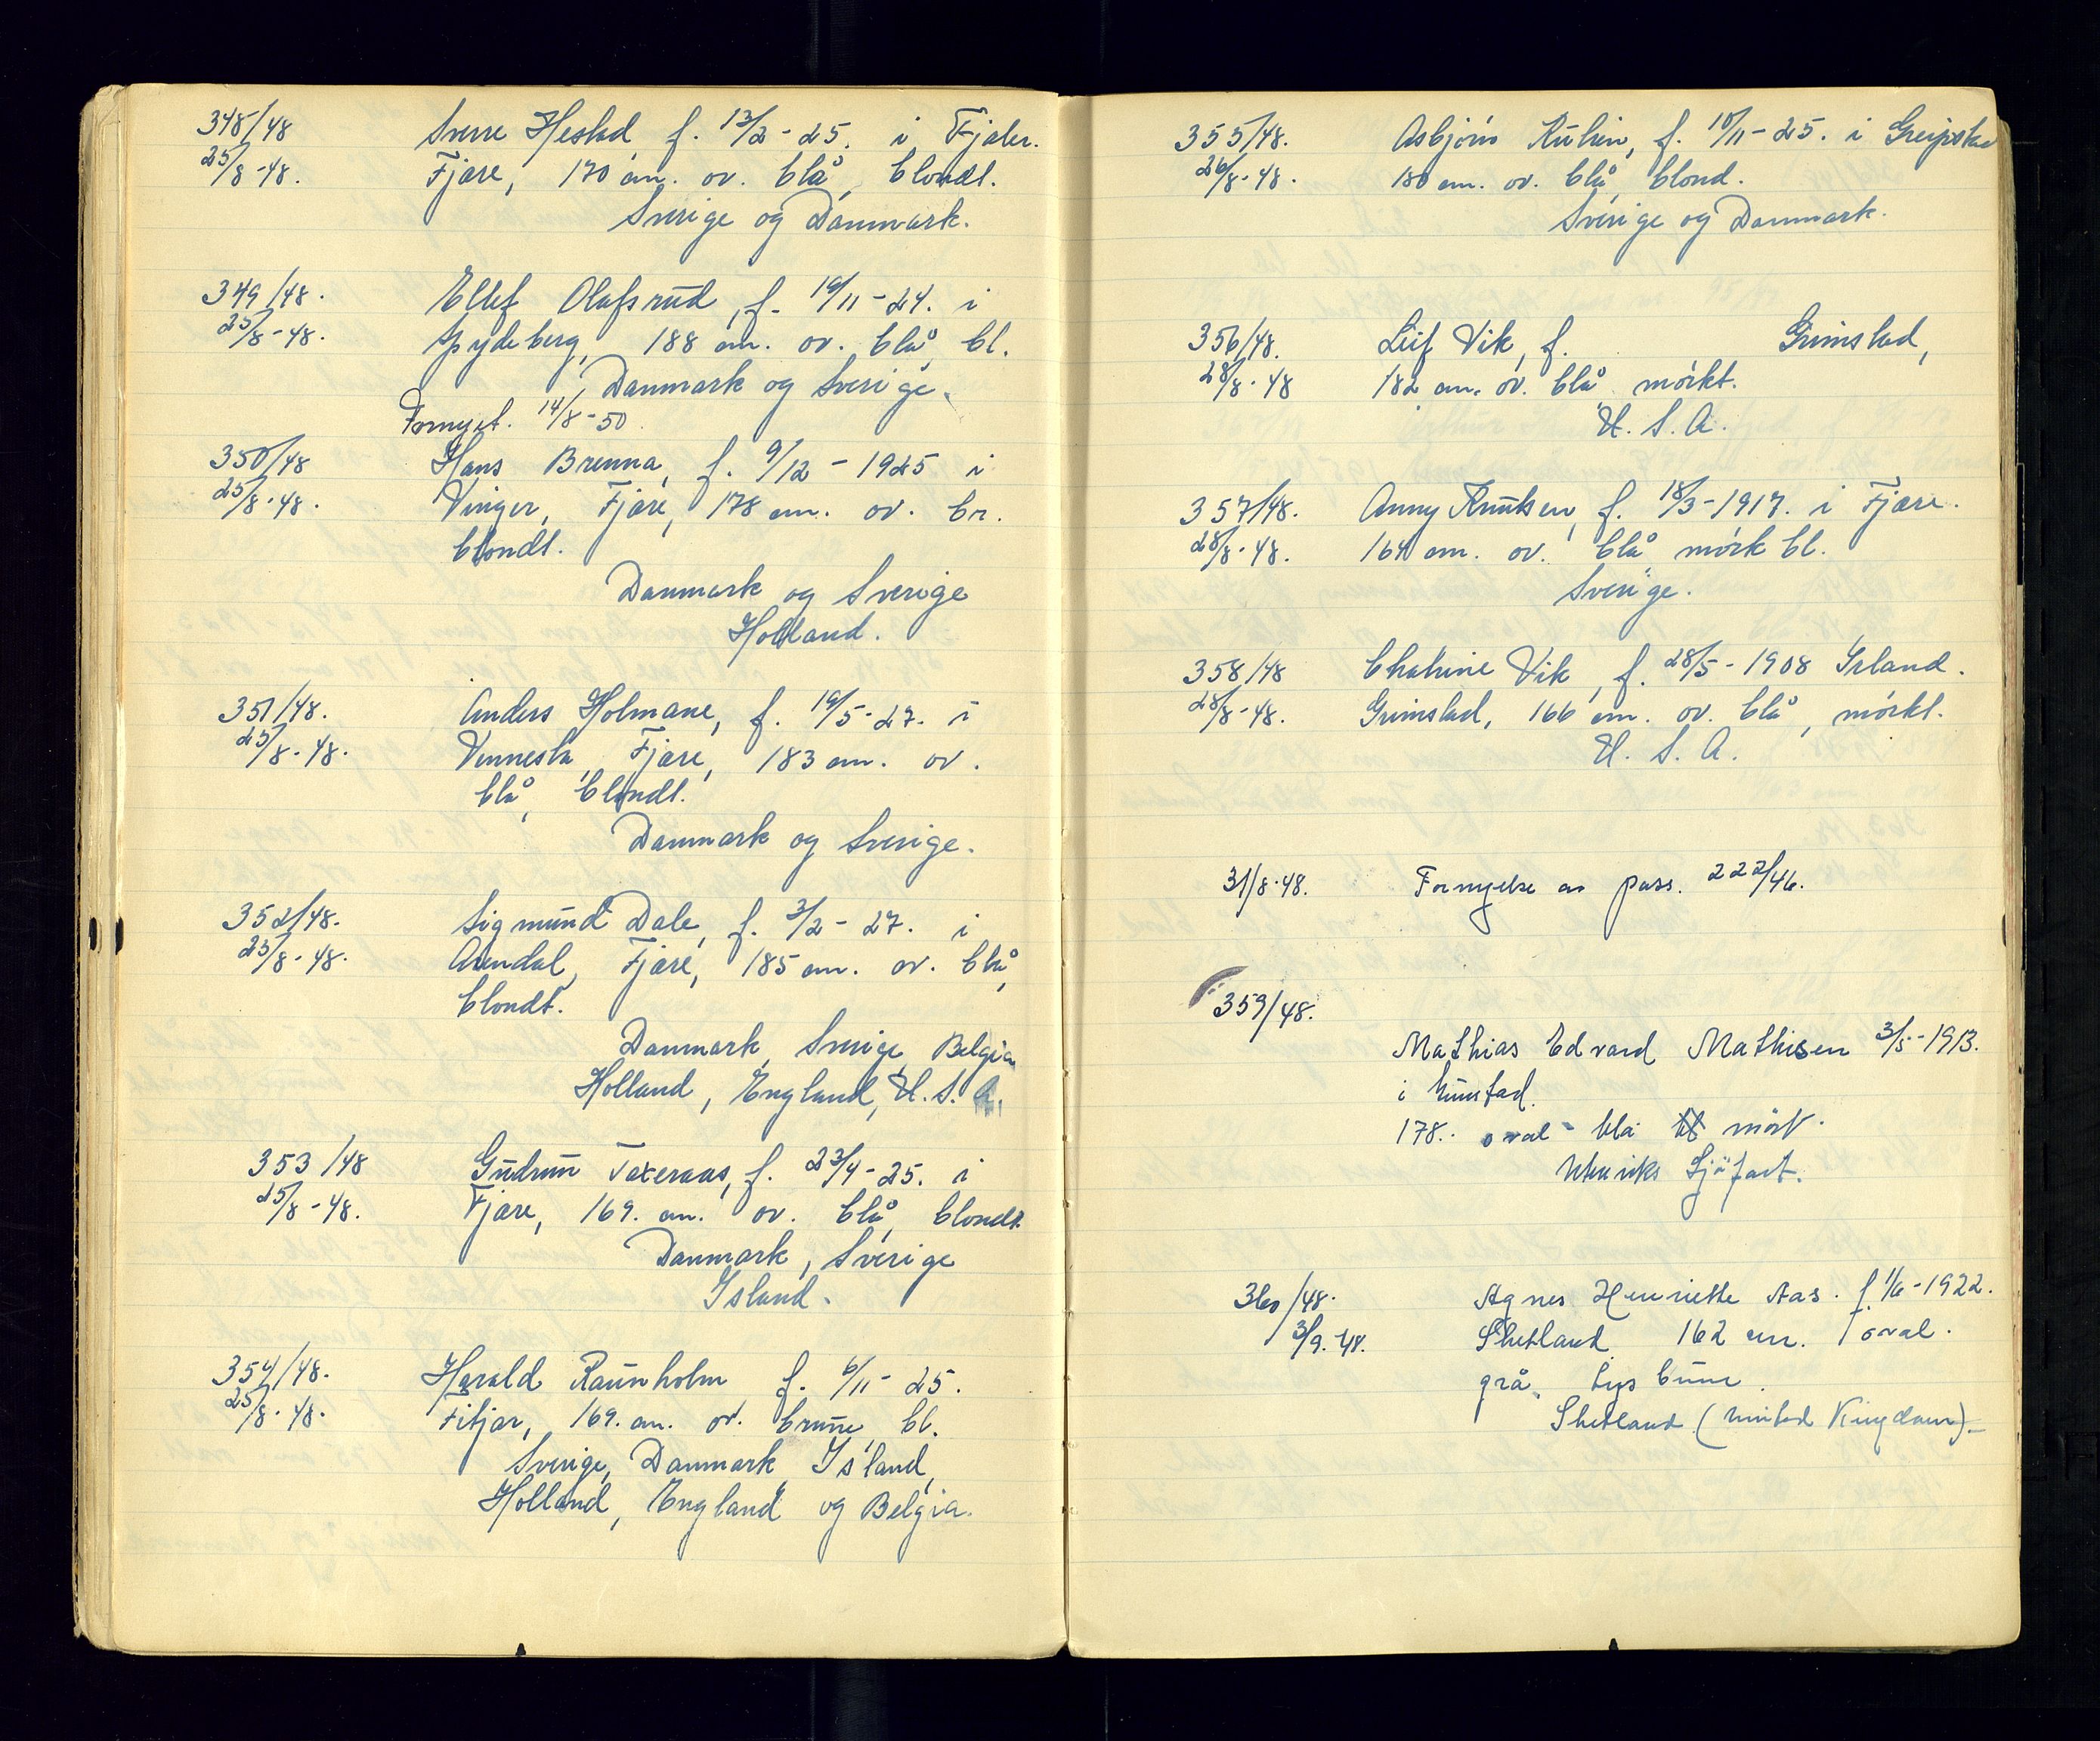 348/48 Sverre Hestad, f. 13/2-25. i Fjaler.
25/8-48. Fjære, 170 cm. ov. blå, blondt.
Sverige og Danmark.
349/48. Ellef Olafsrud, f. 19/11-24. i
25/8-48. Spydeberg, 188 cm. ov. blå, bl.
Danmark og Sverige.
Fornyet. 14/8-50.
350/48 Hans Brenna, f. 9/12-1925 i
25/8-48. Vinger, Fjære, 178 cm. ov. br.
blondt.
Danmark og Sverige
Holland.
351/48. Anders Holmane, f. 19/5-27. i
25/8-48. Vennesla, Fjære, 183 cm. ov.
blå, blondt.
Danmark og Sverige.
352/48. Sigmund Dale, f. 3/2-27. i
25/8-48. Arendal, Fjære, 185 cm. ov. blå,
blondt.
Danmark, Sverige, Belgia
Holland, England, U.S.A.
353/48 Gudrun Taxeraas, f. 23/4-25. i
25/8-48. Fjære, 169. cm. ov. blå, blondt.
Danmark, Sverige
Island.
354/48. Harald Raunholm f. 6/11-25.
25/8-48. Fitjar, 169. cm. ov. brune, bl.
Sverige, Danmark, Island,
Holland, England og Belgia.
355/48. Asbjørn f. 10/11-25. i Greipstad
26/8-48. 180 cm. ov. blå, blond.
Sverige og Danmark.
356/48. Leif Vik, f. Grimstad,
28/8-48 182 cm. ov. blå, mørkt.
U. S. A.
357/48. Anny Knutsen, f. 18/3-1917. i Fjære.
28/8-48. 164 cm. ov. blå, mørk bl.
Sverige.
358/48 Vik, f. 28/5-1908 Irland.
28/8-48. Grimstad, 166 cm. ov. blå, mørkt.
U. S. A.
31/8-48. Fornyelse av pass. 222/46.
359/48.
Mathias Edvard Mathisen 3/5-1913.
i Grimstad.
178. oval blå mørk.
Utenriks Sjøfart.
360/48. Agnes Henriette Aas. f. 1/6-1922.
3/9-48. Shetland 162 cm. oval.
grå. Lys brune.
Shetland (United Kingdom).